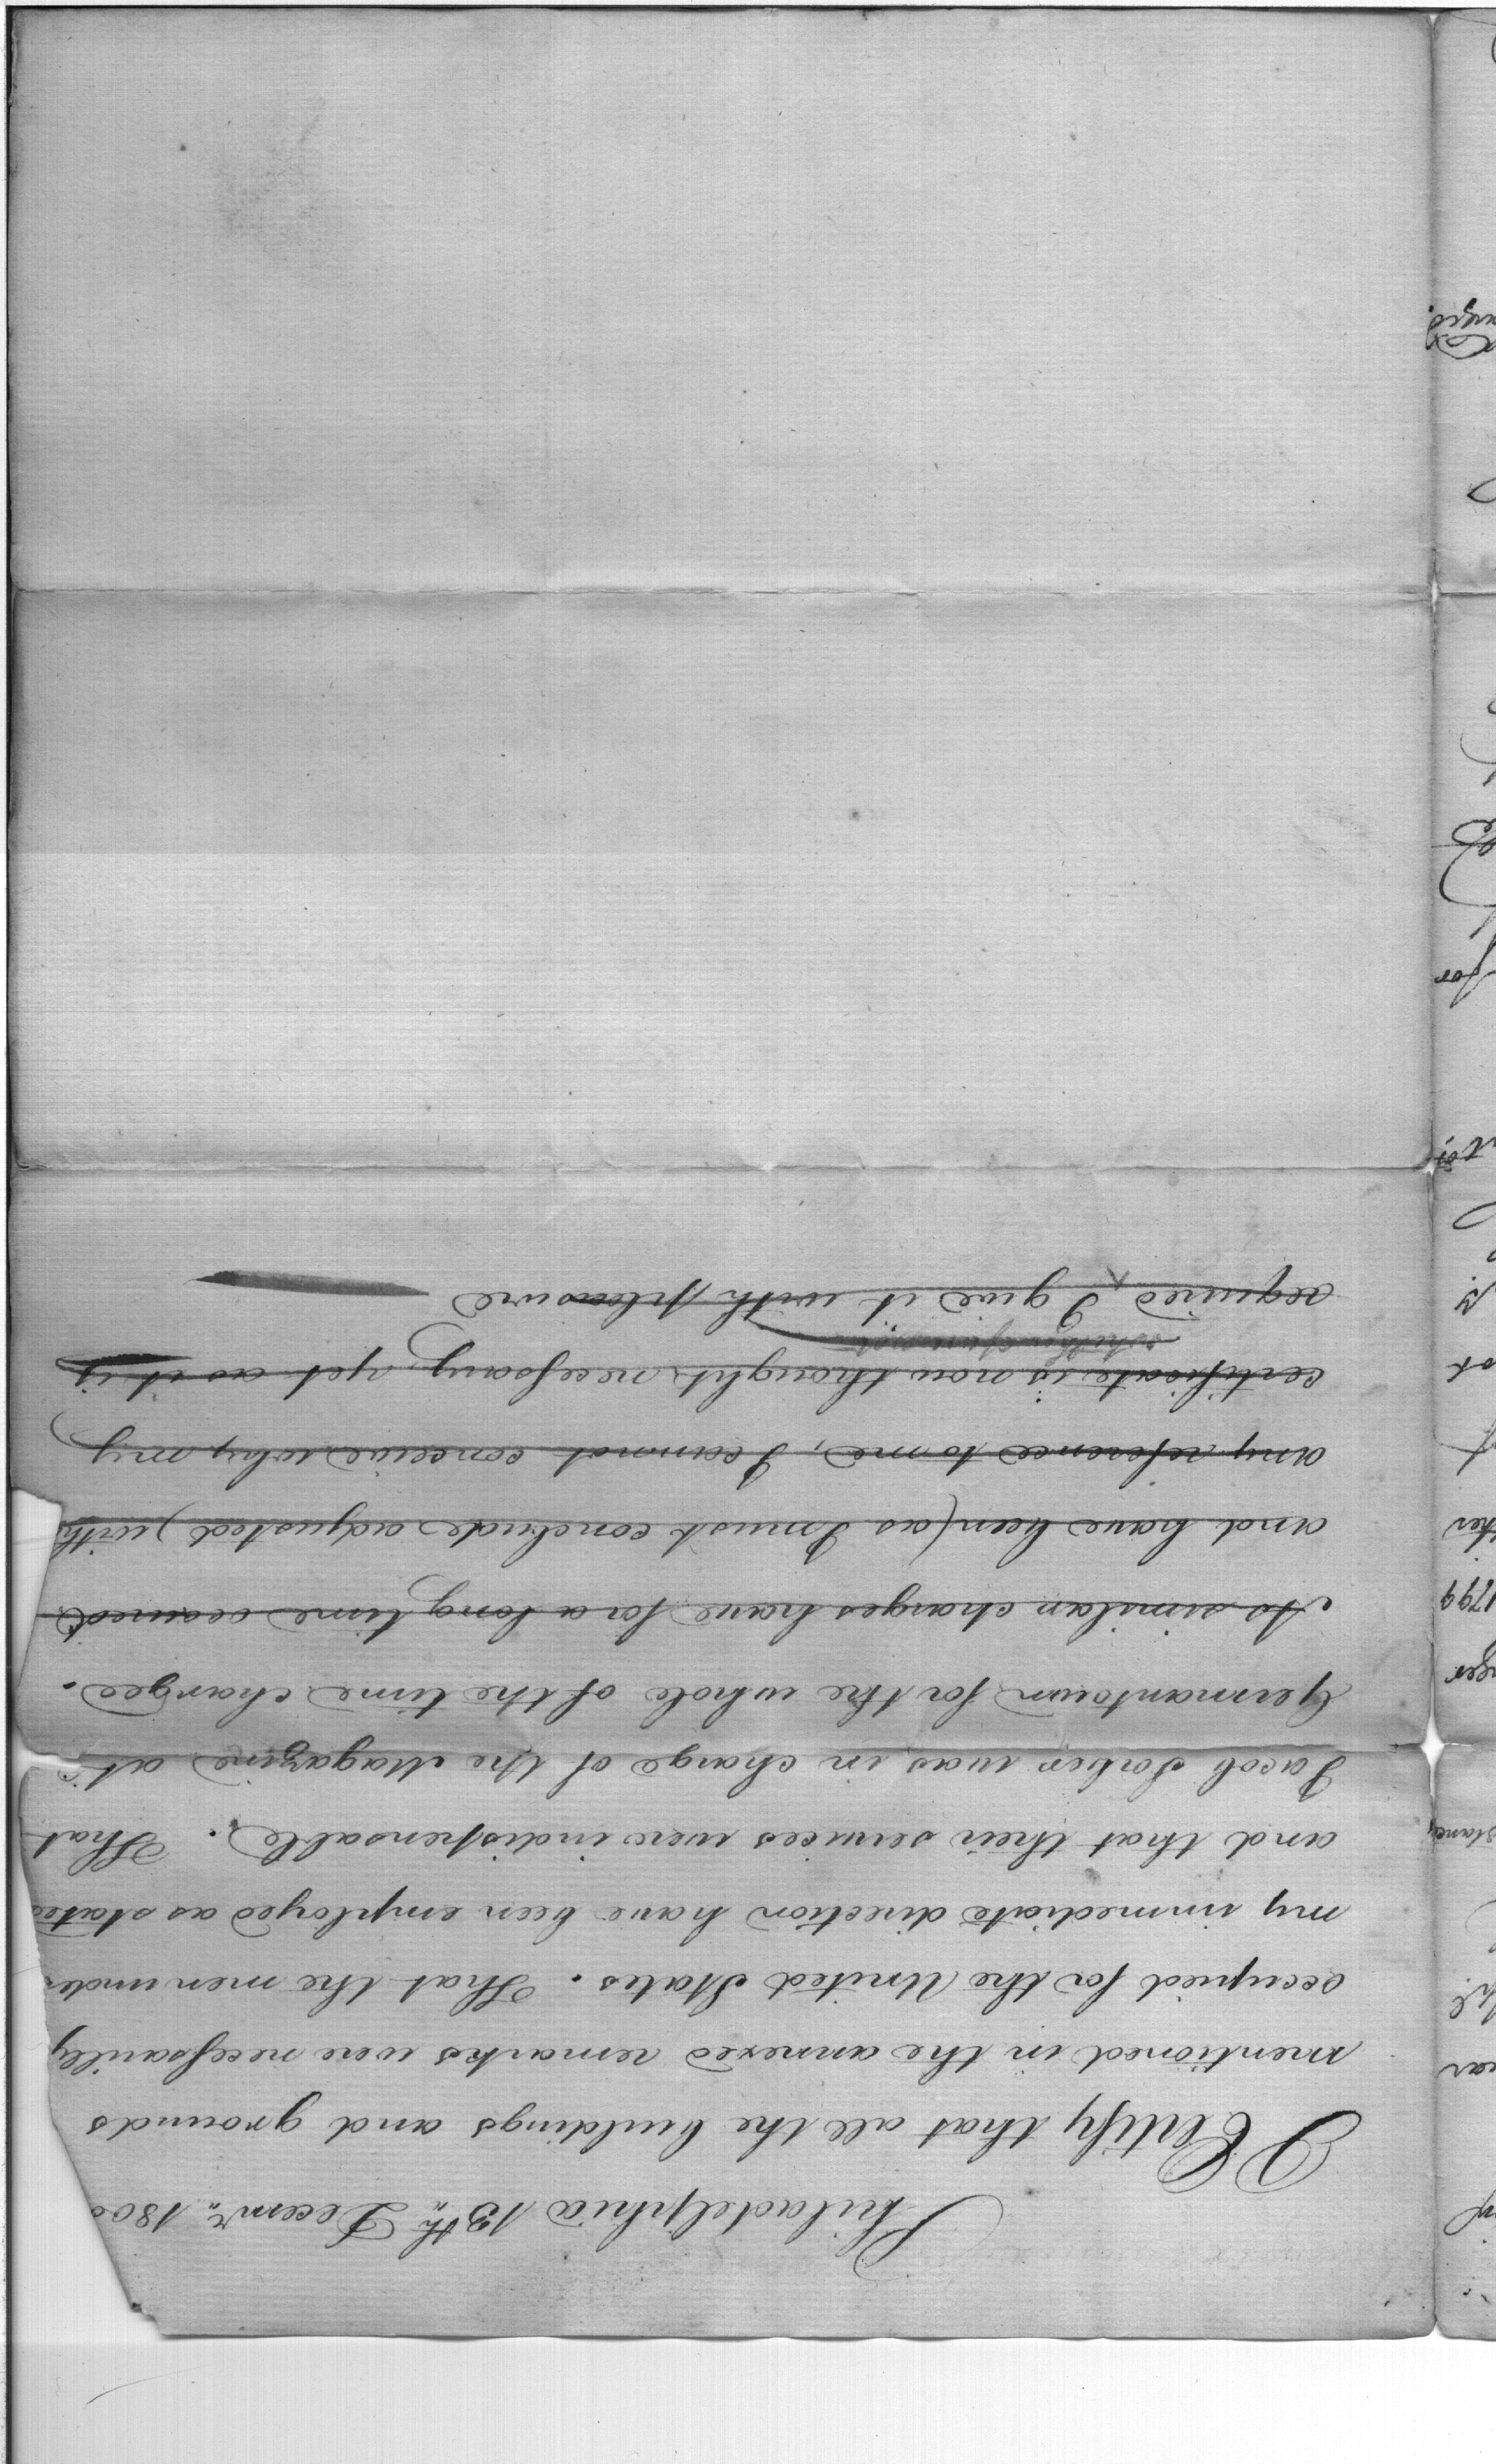 Philadelphia 13th Decemr. 1800
I Certify that all the buildings and grounds
mentioned in the annexed remarks were necessarily
occupied for the United States. That the men under
my immediate direction have been employed as stated
and that their services were indispensable. That
Jacob was in charge of the Magazine at
Germantown for the whole of the time charged.
As similar charges have for a long time occured
and have been (as I must conclude adjusted) with
any reference to me, I cannot conceive why my
certificate is now thought necessary, yet as it is
required I give it with pleasure
1799
for